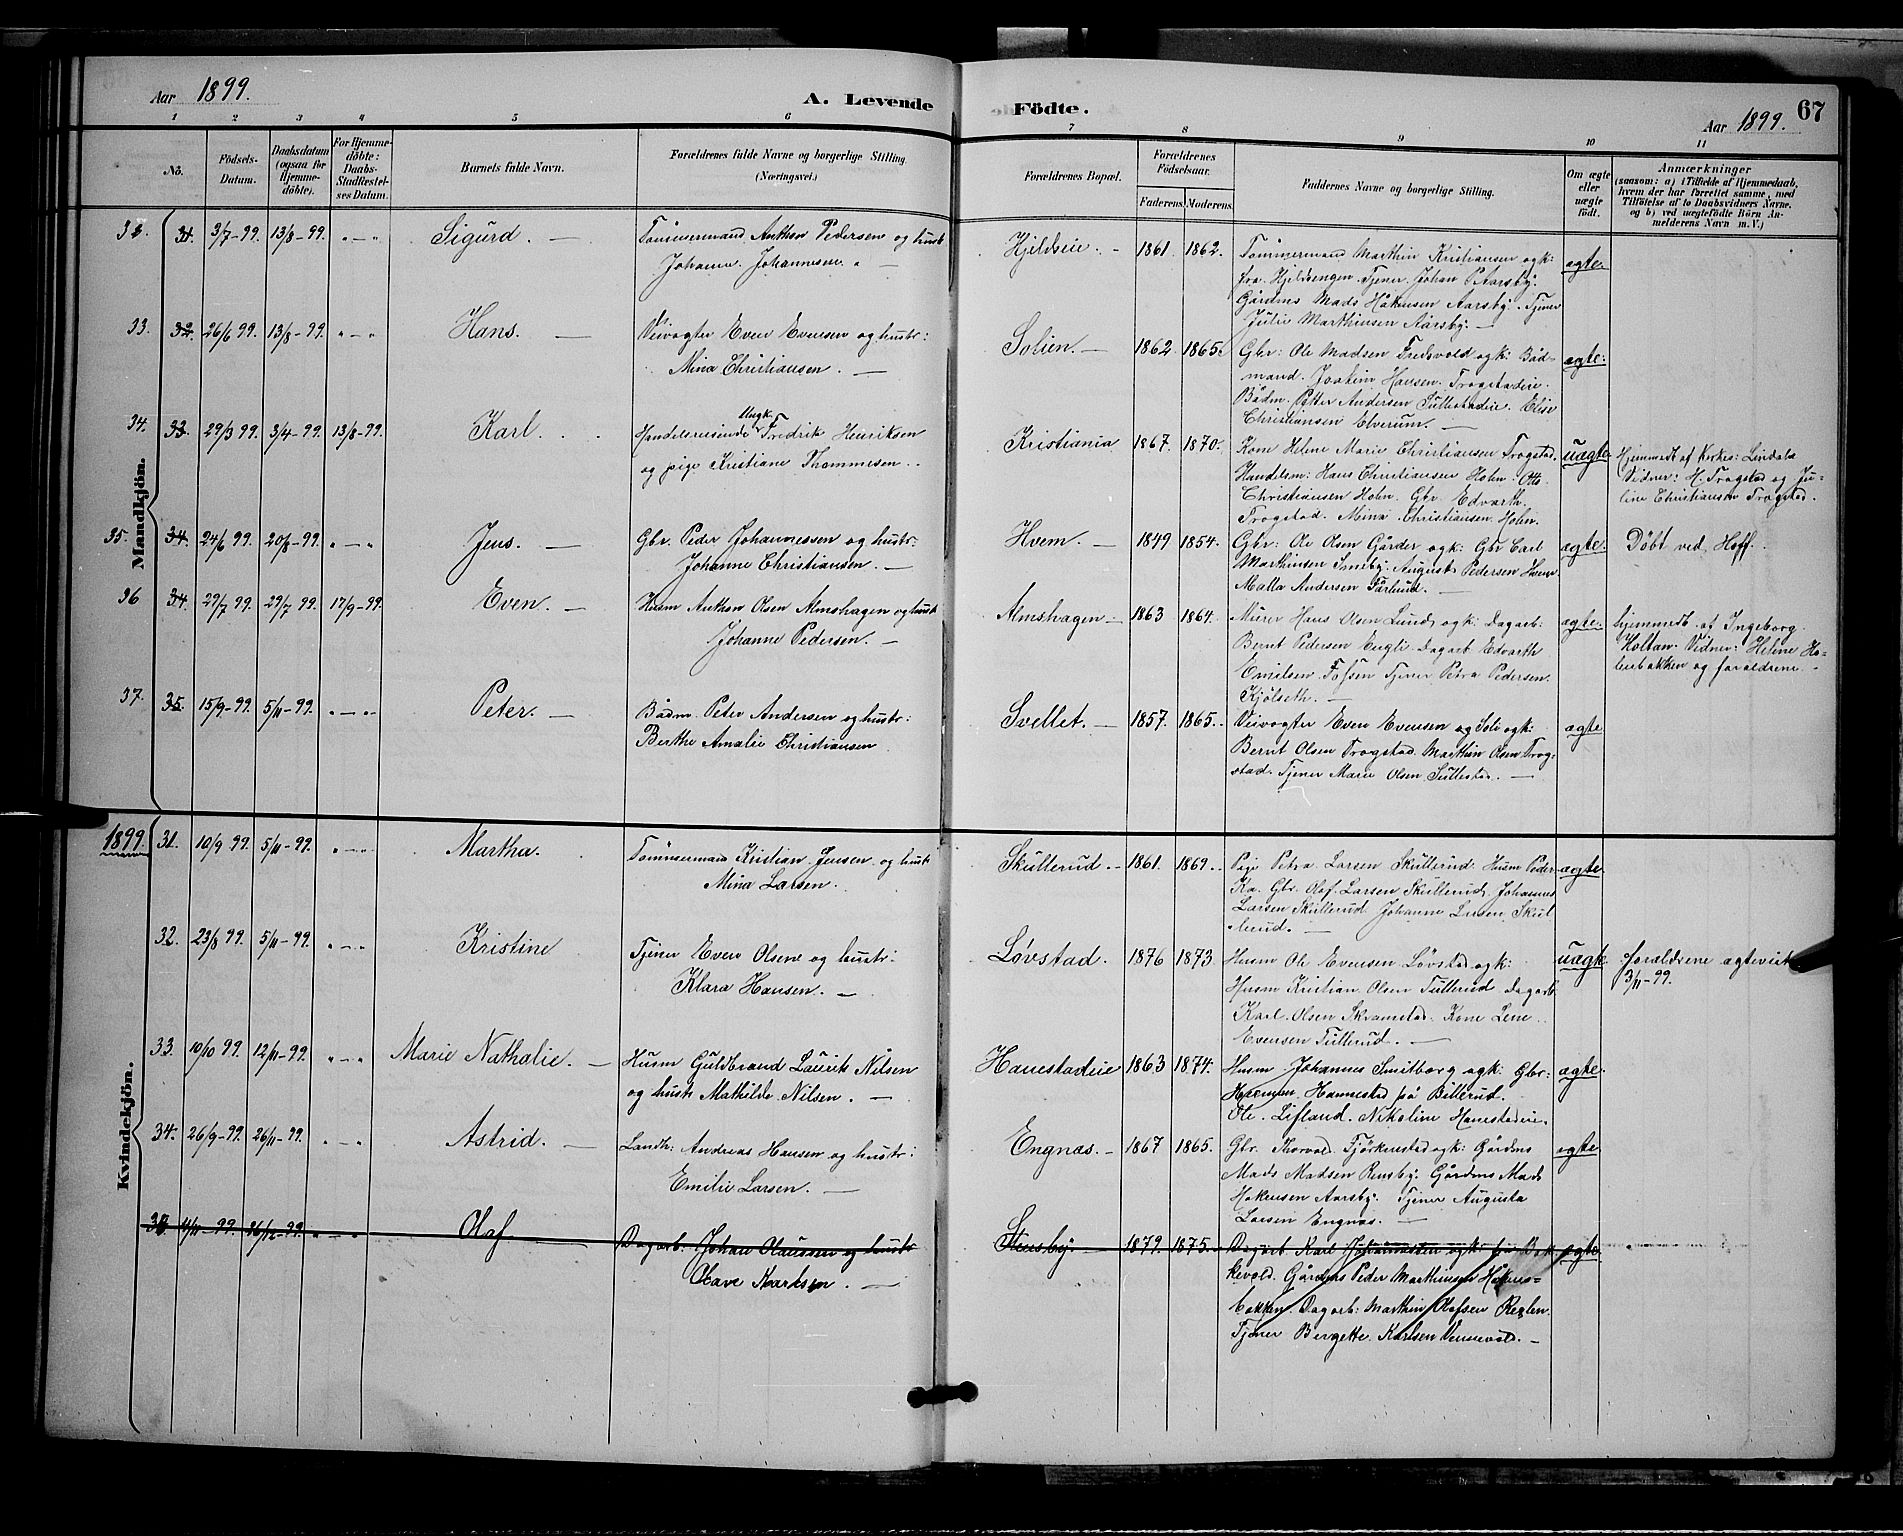 Aar 1899.
A. Levende Födte.
Aar 1899.
67
1 2 3 4 5 6 7 8 9 10 11
No.
Födsels-Datum.
Daabsdatum (ogsaa for Hjemmedöbte).
For Hjemmedöbte: Daabs-Stadfæstelses Datum.
Barnets fulde Navn.
Forældrenes fulde Navne og borgerlige Stilling. (Næringsvei.)
Forældrenes Bopæl.
Forældrenes Födselsaar.
Faderens. Moderens.
Faddernes Navne og borgerlige Stilling.
Om ægte eller uægte födt.
Anmærkninger
(saasom: a) i Tilfælde af Hjemmedaab, hvem der har forrettet samme, med Tilföielse af to Daabsvidners Navne, og b) ved uægtefödte Börn Anmelderens Navn m. V.)
Mandkjön.
31. 3/7-99. 13/8-99. "-" Sigurd. —
Tömmermand Anthon Pedersen og hust
Johanne Johannesen. —
Hjeldseie. - 1861 1862.
Tömmermand Marthin Kristiansen og k:
fra Hjeldsengen. Tjener. Johan P. Aarsby.
Gårdms Mads Håkensen Aarsby. Tjener
Julie Marthinsen Aarsby. —
ægte
33. 32. 26/6 99. 13/8-99. "-" Hans. —
Veivogter Even Evensen og hustr:
Mina Christiansen. —
Solien. — 1862 1865.
Gbr: Ole Madsen Fredsvold og k: Båd-
mand. Joakim Hansen. Trogstadeie.
Bådm. Petter Andersen Sullestadeie. Elise
Christiansen Elverum. —
ægte:
34. 33. 29/3 99. 3/4-99. 13/8-99. Karl.
Ungk.
Handelsreisende Fredrik Henriksen
og pige Kristiane Thommesen.
Kristiania 1867. 1870.
Kone Helene Marie Christiansen Trogstad.
Handelsm: Hans Christiansen Holm. Otto
Christiansen Holm. Gbr. Edvarth
Trogstad. Mina Christiansen Holm.
uægte
Hjemmedt af Kirkes: Lindals
Vidner: H. Trogstad og Ju-
line Christiansen Trogstad.
35. 34. 24/6 99. 20/8-99. "-" Jens. —
Gbr. Peder Johannessen og hustr:
Johanne Christiansen. —
Hvem. — 1849 1854.
Gbr: Ole Olsen Gårder og k: Gbr Carl
Marthinsen Smeby. August Pedersen Hvem
Malla Andersen Färlund. —
ægte.
Döbt ved Hoff.
36 34. 29/7 99. 29/7 99. 17/9-99. Even. —
Husm Anthon Olsen Almshagen og hust
Johanne Pedersen. —
Almshagen - 1863 1864.
Murer Hans Olsen Lund og k: Dagarb:
Bernt Pedersen Engli. Dagarb Edvarth
Emilsen Fossen Tjener Petra Pedersen
Kjölseth. —
ægte.
hjemmedt. af Ingeborg
Koltan. Vidner: Helene Ho-
lenbakken og forældrene.
37. 35. 15/9-99. 5/11-99. "-" Peter. —
Bådm. Peter Andersen og hustr:
Berthe Amalie Christiansen
Svellet. — 1857. 1865.
Veivogter Even Evensen og Soli og k:
Bernt Olsen Trogstad. Marthin Olsen Trog-
stad. Tjener Marie Olsen Sullestad. —
ægte
1899.
Kvindekjön.
31. 10/9 99. 5/11-99. "-" Martha.
Tömmermand Kristian Jensen og hust
Mina Larsen.
Skullerud. - 1861. 1869.
Pige Petra Larsen Skullerud. Husm Peder
Ka. Gbr. Olaf. Larsen Skullerud. Johannes
Larsen Skullerud. Johanne Larsen Skul
lerud. —
ægte
32. 23/8 99. 5/11-99. "-" Kristine
Tjener Even Olsen og hustr:
Klara Hansen. —
Lövstad. 1876 1873
Husm Ole Evensen Lövstad og k:
Husm Kristian Olsen Tullerud Dagarb
Karl Olsen Skramstad. Kone Lene
Evensen Tullerud. —
uægte
forældrene ægteviet
3/11-99.
33. 10/10 99. 12/11-99. "-" Marie Nathalie. —
Husm Guldbrand Laurits Nilsen
og hust Mathilde Nilsen. —
Hanestadeie 1863 1874.
Husm Johannes Smitborg og k: Gbr:
Hannestad på Billerud.
Ole. Lifland. Nikoline Hanestadeie.
ægte
34. 26/9-99. 26/11-99. "-" Astrid. —
Landh: Andreas Hansen og hustr:
Emilie Larsen. —
Engnæs. - 1867 1865.
Gbr. Thorvold Tjörkenstad og k: Gårdms
Mads Madsen Rensby. Gårdms Mads
Håkensen Aarsby. Tjener Augusta
Larsen Engnæs. —
ægte
11/11-99. 26/12-99. "-" Olaf. —
Dagarb: Johan Olaussen og hustr
Olave Karlsen. —
Stensby. — 1879. 1875.
Dagarb Karl Johannessen og k: fra Bak
kevold. Gårdms Peder Marthinsen Håkens-
bakken. Dagarb: Marthin Olafsen Ræhlen
Tjener Bergette Karlsen Vensevold. —
ægte